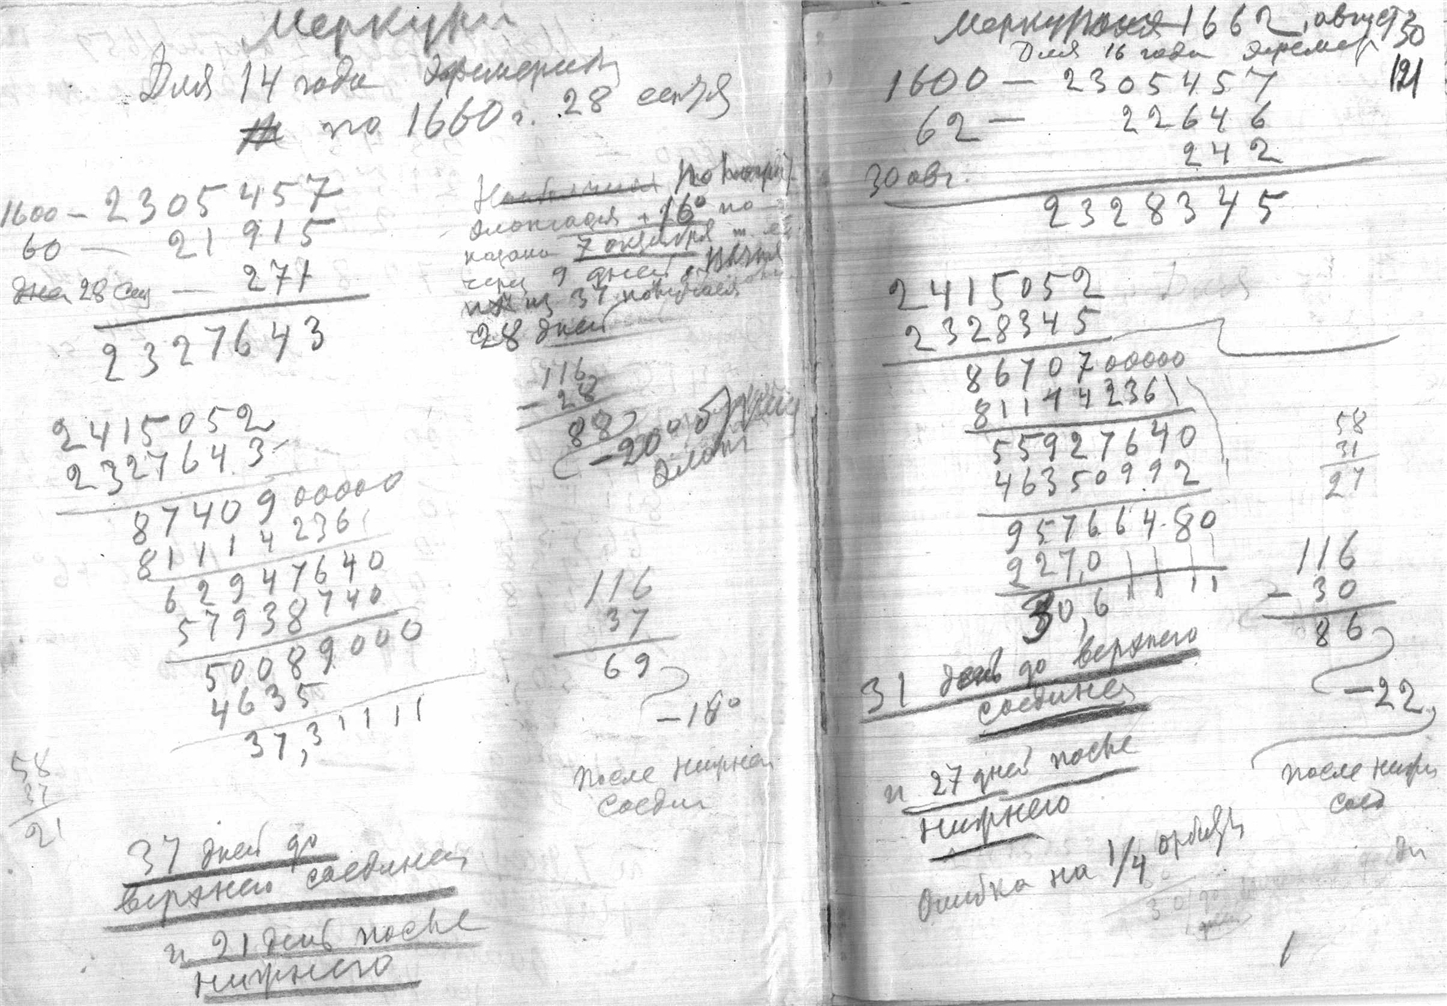 Меркури
Для 14 года эфемерид
по 1660 г. 28 сентя
1600 — 2305457
60 — 21915
28 сен — 271
2327643
2415052
2327643
8740900000
81114236
62947640
57938740
5008900
4635
37,3
58
37
21
37 дней до
верхнего соединен
и 21 день после
нижнего
элонгация + 16° по
казана 7 октября т. е.
через 9 дней
из 37 получаем
28 дней
116
- 28
88
- 20°
элонг
116
37
69
- 18°
после нижнего
соедин
1662, август 30
Для 16 года эфемер
121
1600 — 2305457
62 — 22646
30 авг. 242
2328345
2415052
2328345
8670700000
81144236
55927640
46350992
95766480
927,0
30,6
31 день до верхнего
соединен
и 27 дней после
нижнего
Ошибка на 1/4 орбиты
58
31
27
116
- 30
86
- 22
после нижн
соед